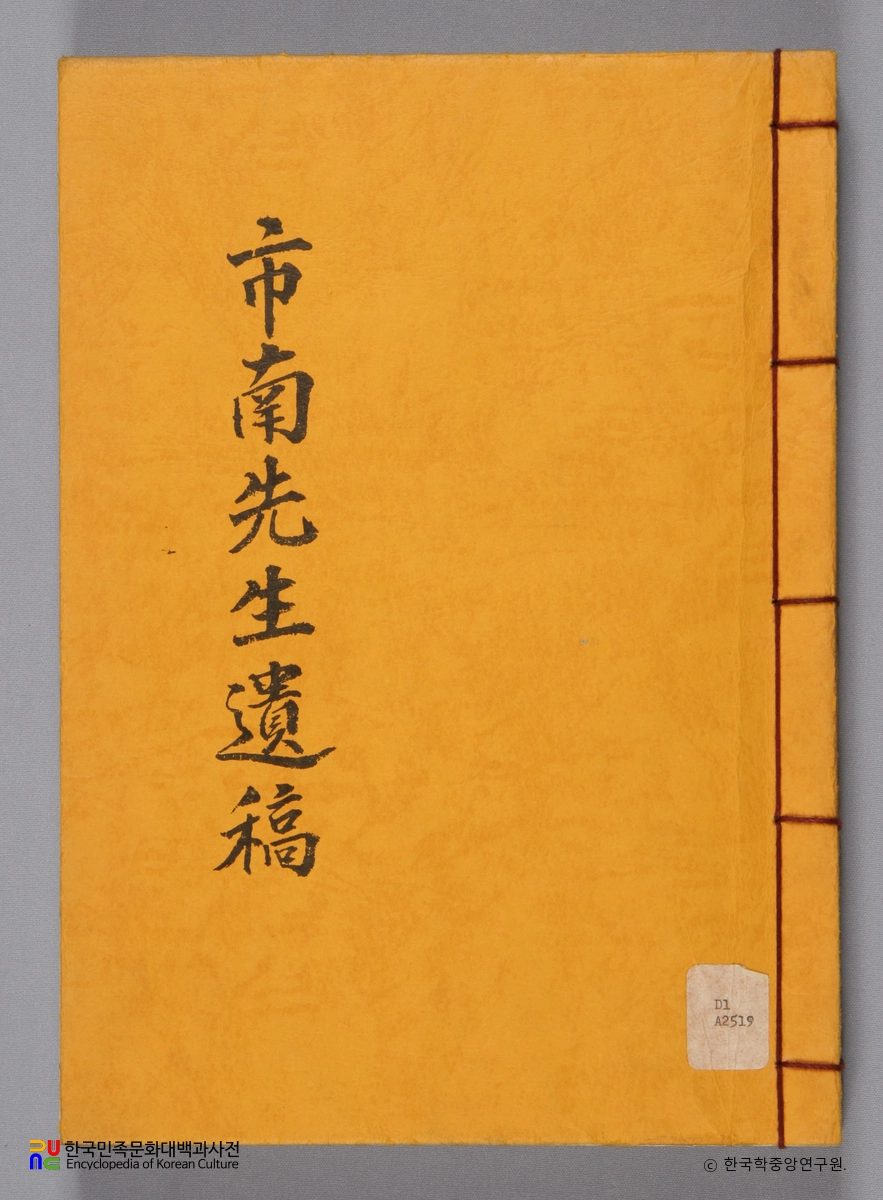 市南先生遺稿
D1
A2519
한국민족문화대백과사전
Encyclopedia of Korean Culture
ⓒ 한국학중앙연구원.